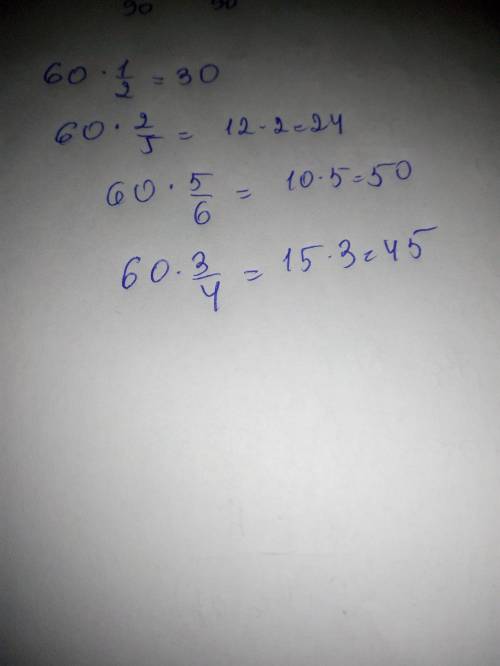 60 · 1/2 = 30
60 · 2/5 = 12 · 2 = 24
60 · 5/6 = 10 · 5 = 50
60 · 3/4 = 15 · 3 = 45